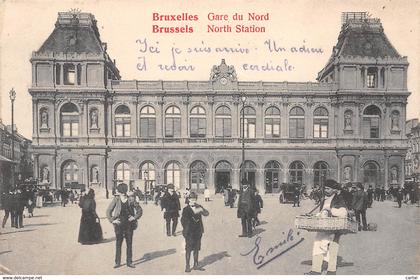 Bruxelles Gare du Nord
Brussels North Station
Ici je suis arrivé. Un adieu
et revoir cordiale.
Emile